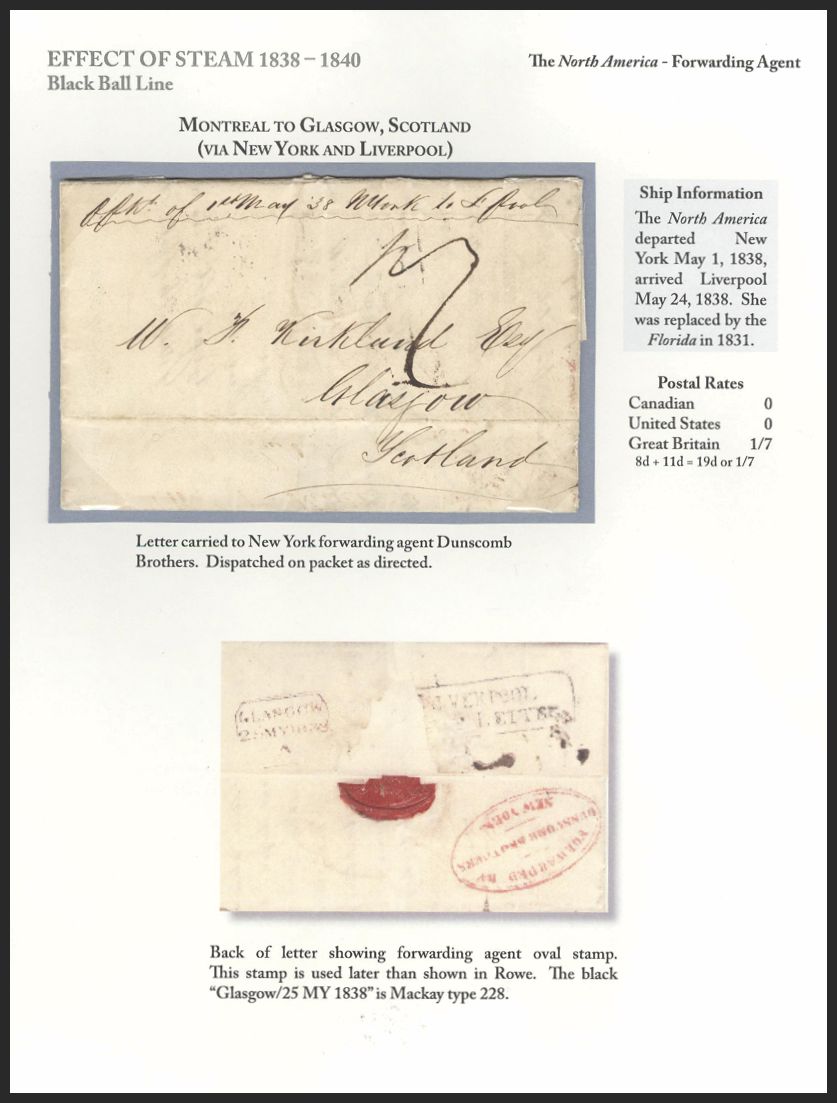 EFFECT OF STEAM 1838 – 1840
Black Ball Line
The North America - Forwarding Agent
MONTREAL TO GLASGOW, SCOTLAND
(VIA NEW YORK AND LIVERPOOL)
of 1st May 38 NYork to L'Pool
W. Kirkland Esq
Glasgow
Scotland
Ship Information
The North America
departed New
York May 1, 1838,
arrived Liverpool
May 24, 1838. She
was replaced by the
Florida in 1831.
Postal Rates
Canadian 0
United States 0
Great Britain 1/7
8d + 11d = 19d or 1/7
Letter carried to New York forwarding agent Dunscomb
Brothers. Dispatched on packet as directed.
GLASGOW
LIVERPOOL
LETTER
FORWARDED BY
DUNSCOMB BROTHERS
NEW YORK
Back of letter showing forwarding agent oval stamp.
This stamp is used later than shown in Rowe. The black
“Glasgow/25 MY 1838” is Mackay type 228.